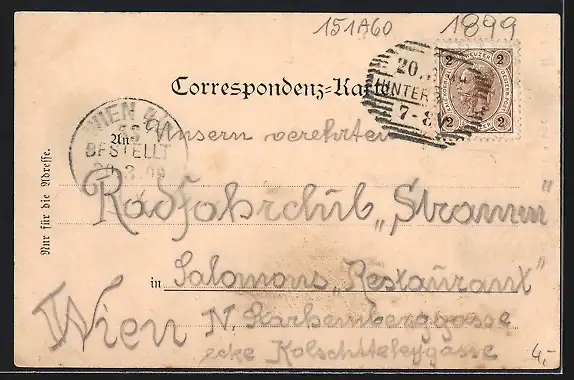 151A60 1899
Correspondenz-Karte
2 KREUZER 2
20.
UNTER
7-8V
2 2
WIEN
BESTELLT
20.3.99
An Unsern verehrten
Radfahrclub „Stramm"
in Salomons „Restaurant"
Wien IV. Starhemberggasse
ecke Kolschitzkygasse
Nur für die Adresse.
4,-